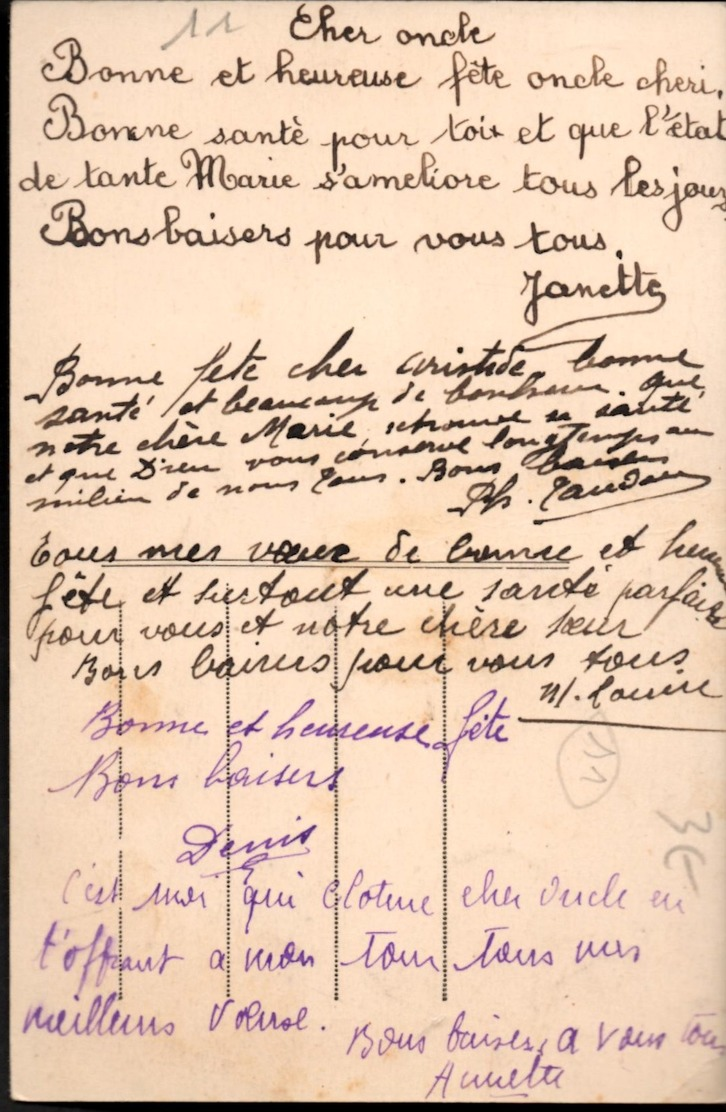 11
Cher oncle
Bonne et heureuse fête oncle cheri.
Bonne santè pour toi et que l'état
de tante Marie s'ameliore tous les jours
Bons baisers pour vous tous.
Janette
Bonne fete cher Aristide, bonne
santé et beaucoup de bonheur. que
notre chère Marie retrouve sa santé
et que Dieu vous conserve longtemps au
milieu de nous tous. Bons baisers
Ph.
Tous mes vœux de bonne et
fête et surtout une santé parfaite
pour vous et notre chère sœur
Bons baisers pour vous tous
M. Louise
Bonne et heureuse fête
Bons baisers
Denis
11
3€
C'est moi qui cloture cher oncle en
t'offrant a mon tour tous mes
meilleurs voeux.
Bons baisers a vous tous
Annette